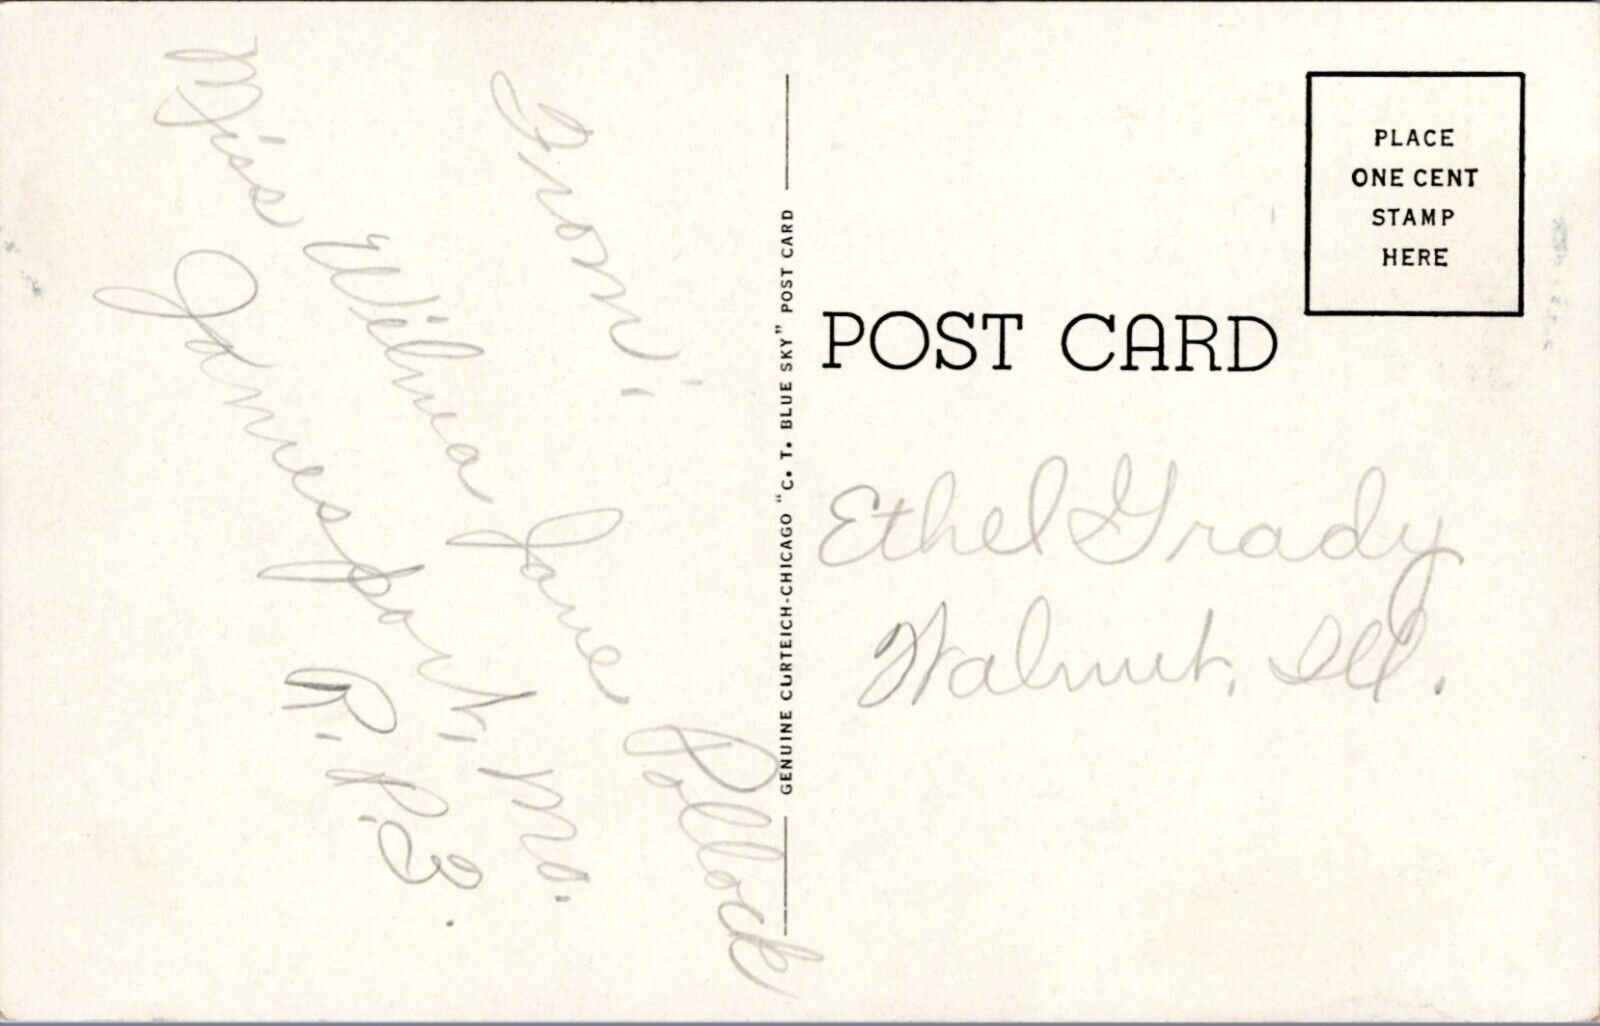 From:
Miss Wilma Jane Pollock
Jamesport, Mo.
R. P. 3.
GENUINE CURTEICH-CHICAGO "C. T. BLUE SKY" POST CARD
PLACE
ONE CENT
STAMP
HERE
POST CARD
Ethel Grady
Walnut, Ill.